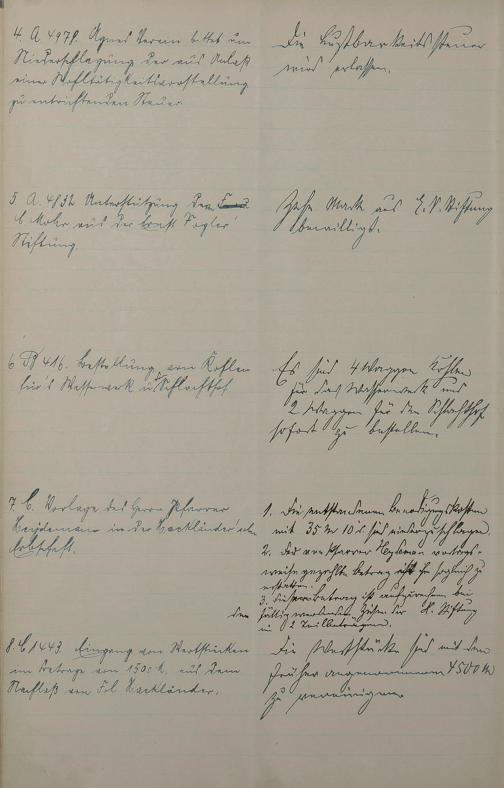 4. A 4978. Agnes Verein bittet um
Niederschlagung der aus Anlaß
einer Wohltätigkeitsvorstellung
zu entrichtenden Steuer.
Die Lustbarkeitssteuer
wird erlassen.
5 A. 4832 Unterstützung der
C Mohr aus der Ernst Vogler'
Stiftung.
Zehn Mark aus E. V. Stiftung
bewilligt.
6 B 416. Bestellung von Kohlen
für's Wasserwerk u. Schlachthof.
Es sind 4 Waggon Kohlen
für das Wasserwerk und
2 Waggon für den Schlachthof
sofort zu bestellen.
7. C. Vorlage des Herrn Pfarrer
Heydemann in der Hackländer'schen
Erbschaft.
1. Die entstandenen Beerdigungskosten
mit 35 M 10 d sind niederzuschlagen.
2. Der von Pfarrer Heydemann vorlags-
weise gezahlte Betrag ist ihm sogleich zu
erstatten.
3. Dieser Betrag ist aufzurechnen bei
den fällig werdenden Zinsen der H. Stiftung
in 2 Teilbeträgen.
8. C 1443. Eingang von Wertstücken
im Betrage von 1500 M. aus dem
Nachlaß von Frl. Hackländer.
Die Wertstücke sind mit den
früher angenommenen 4500 M
zu vereinigen.